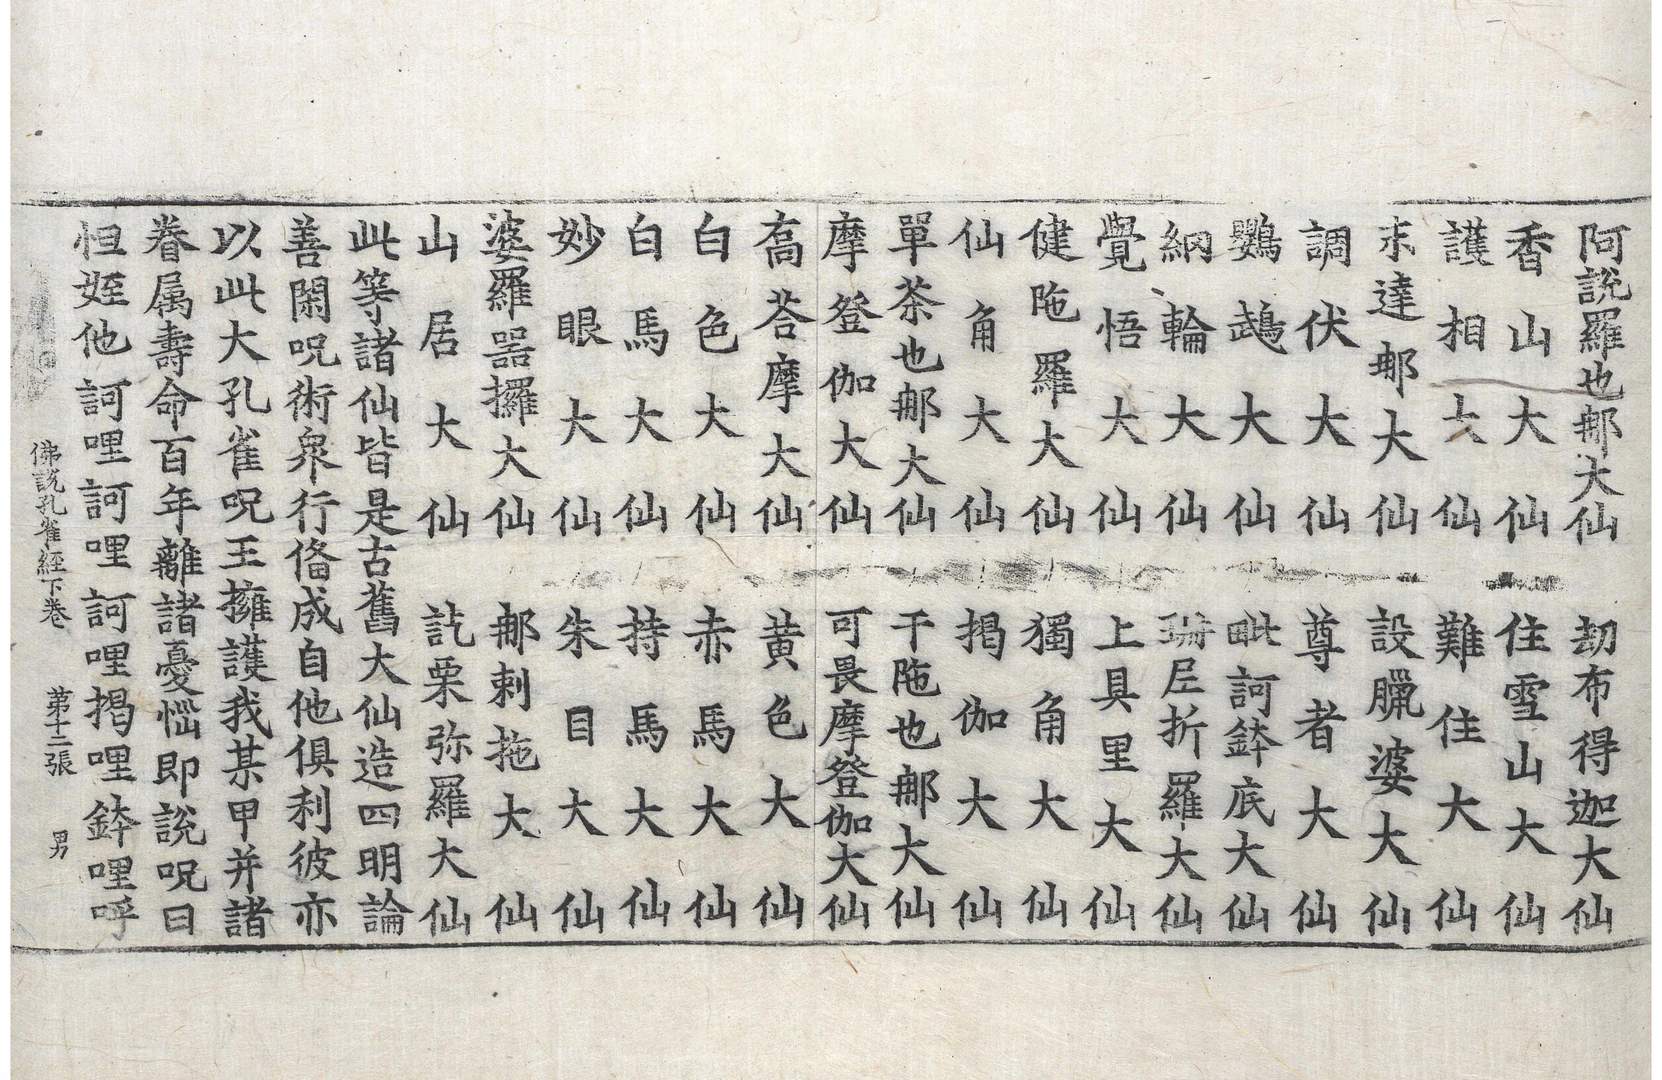 阿說羅也那大仙　劫布得迦大仙
香山大仙　住雪山大仙
護相大仙　難住大仙
末達那大仙　設臘婆大仙
調伏大仙　尊者大仙
鸚鵡大仙　毗訶鉢底大仙
網輪大仙　珊尼折羅大仙
覺悟大仙　上具里大仙
健陁羅大仙　獨角大仙
仙角大仙　揭伽大仙
單荼也那大仙　干陁也那大仙
摩登伽大仙　可畏摩登伽大仙
喬荅摩大仙　黃色大仙
白色大仙　赤馬大仙
白馬大仙　持馬大仙
妙眼大仙　朱目大仙
婆羅器攞大仙　那剌拖大仙
山居大仙　訖栗弥羅大仙
此等諸仙皆是古舊大仙造四明論
善閑呪術衆行俻成自他俱利彼亦
以此大孔雀呪王擁護我某甲并諸
眷属壽命百年離諸憂惱即說呪曰
怛姪他訶哩訶哩訶哩揭哩鉢哩呼
佛說孔雀經下卷　第十二張　男